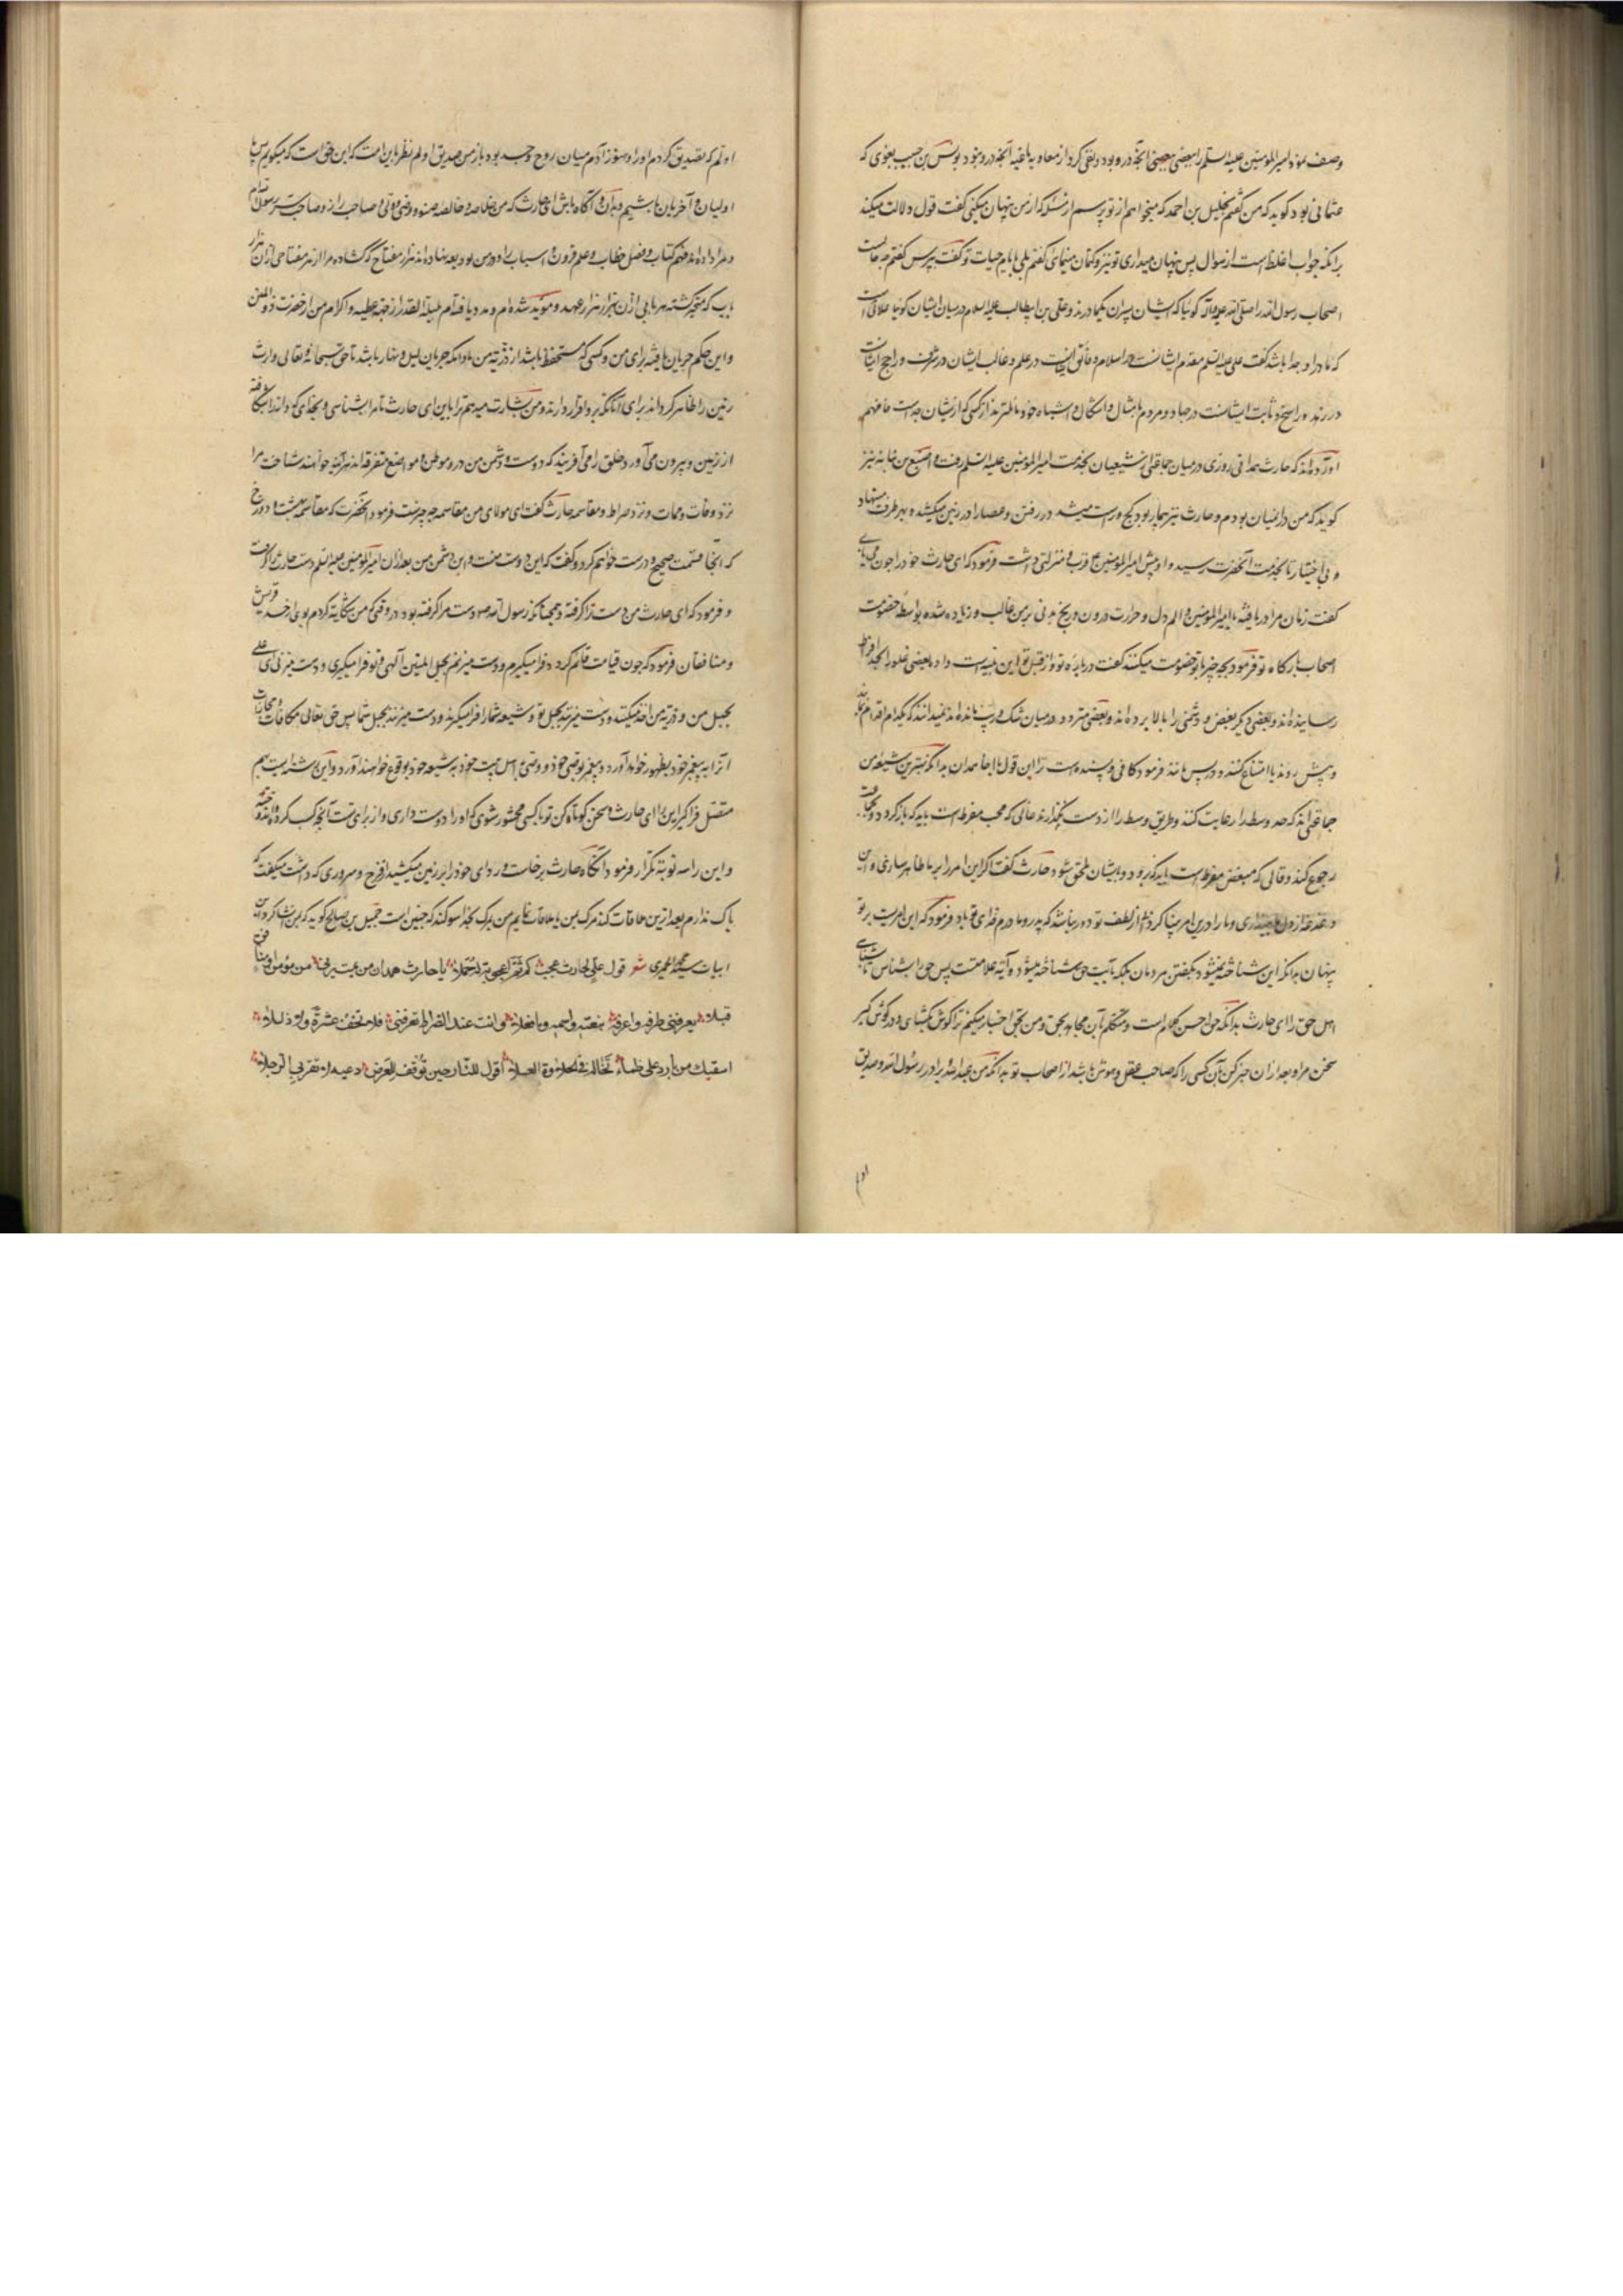 وصف نمود امیرالمومنین علیه السلم را ببعضی آنچه در و بود و نفی کرد از معاویه باغیه آنچه درو نبود یونس بن حبیب نحوی که
عثمانی بود کوید که من کفتم بخلیل بن احمد که میخواهم از تو پرسم از مسئله که از من پنهان میکنی کفت قول تو دلالت میکند
برانکه جواب اغلظ است از سوال پس پنهان میداری تو نیز و کتمان مینمای کفتم بلی ایام حیات تو کفت بپرس کفتم چه حالست
اصحاب رسول الله را صلی الله علیه وآله کوئیا که ایشان پسران یکمادرند و علی بن ابیطالب علیه السلام در میان ایشان کویا علاتی است
که مادر او جدا باشد کفت علی علیه السلم مقدم ایشانست در اسلام و فائق ایشانست در علم و غالب ایشان در شرف و راجح ایشانست
در زهد و راسخ و ثابت ایشانست در جهاد و مردم بامثال و اشکال و اشباه خود مایلترند از کسی که از یشان جداست فافهم
آورده اند که حارث همدانی روزی در میان جماعتی از شیعیان بخدمت امیرالمومنین علیه السلم رفت و اصبغ بن نباته نیز
کوید که من در انمیان بودم و حارث نیز بیمار بود کج و راست میشد در رفتن و عصا را در زمین میکشید و بهر طرف مینهاد
و بی اختیار تا بخدمت آنحضرت رسید و او پیش امیرالمومنین ع قرب و منزلتی داشت فرمود که ای حارث خود را چون می یابی
کفت زمان مرا دریافته یا امیرالمومنین و الم دل و حرارت درون و رنج بدنی بر من غالب و زیاده شده بواسطه خصومت
اصحاب بارکاه تو فرمود بچه چیز با تو خصومت میکنند کفت در باره تو و از قبل تو این بلیه است و اد بعضی غلو را بحد افراط
رسانیده اند و بعضی دیکر بغض و دشمنی را بالا برده اند و بعضی متردد در میان شک و ریب مانده اند نمیدانند که بکدام اقدام نمایند
و پیش روند یا امتناع کنند و در پس مانند فرمود کافی و پسنده است ترا این قول ای اخا همدان بدانکه بهترین شیعه من
جماعتی اند که حد وسط را رعایت کنند و طریق وسط را از دست نکذارند غالی که محب مفرط است باید که باز کردد و بجماعت
رجوع کند و قالی که مبغض مفرط است باید که زود بیشان ملحق شود حارث کفت اکر این امر را بر ما ظاهر سازی و این
دغدغه از دل ما برداری و ما را درین امر بینا کردانی از لطف تو دور نباشد که پدر و مادرم فدای تو باد فرمود که این امریست بر تو
پنهان بدانکه این شناخته نمیشود بکفتن مردمان بلکه بآیت حق شناخته میشود و آیه علامتست پس حق را بشناس تا بشناسی
اهل حق را ای حارث بدانکه حق احسن کلام است و متکلم بآن مجاهد بحق و من بحق اخبار میکنم ترا کوش بکشای و در کوش کیر
سخن مرا و بعد از ان خبر کن بآن کسی را که صاحب عقل و هوش باشد از اصحاب تو بدانکه من عبدالله برادر رسول الله و صدیق
اولم که تصدیق کردم او را و هنوز آدم میان روح و جسد بود باز من صدیق اولم نظر باین امت که این حق است که میکویم پس ما
اولیان و آخریان باشیم و بدان و آکاه باش ای حارث که من خلاصه و خالصه صنو و وصی و ولی و صاحب راز و صاحب سر رسول الله ام
و مرا داده اند فهم کتاب و فصل خطاب و علم قرون و اسباب را و در من ودیعه نهاده اند هزار مفتاح که کشاده مرا از هر مفتاحی از ان هزار
باب که منجر کشته هر بابی از ان بهزار هزار عهد و مؤید شده ام و مدد یافته ام بلیلة القدر از جهة عطیه و اکرام من از حضرت ذو المنن
و این حکم جریان یافته برای من و کسی که مستحفظ باشد از ذریه من مادامکه جریان لیل و نهار باشد تا حق سبحانه و تعالی وارث
زمین را ظاهر کرداند برای آنانکه برو اقرار دارند و من بشارت میدهم ترا باین ای حارث تا مرا بشناسی و بخدای که دانه را شکافته
از زمین و بیرون می آورد و خلق را می آفریند که دوست و دشمن من در و موطن و مواضع متفرقه اند هر آینه خواهند شناخت مرا
نزد وفات و ممات و نزد صراط و مقاسمه حارث کفت ای مولای من مقاسمه چه چیز است فرمود آنحضرت که مقاسمه بهشت و دوزخ
که آنجا قسمت صحیح و درست خواهم کرد و کفت که این دوست منست و این دشمن من بعد از ان امیرالمومنین علیه السلم دست حارث را کرفت
و فرمود که ای حارث من دست ترا کرفته همچنانکه رسول الله ص دست مرا کرفته بود در وقتی که من شکایة کردم بوی از حسد قریش
و منافقان فرمود که چون قیامت قائم کردد فرا میکیرم و دست میزنم بحبل المتین آلهی و تو فرا میکیری و دست میزنی ای علی
بحبل من و ذریه من اخذ میکنند و دست میزنند بحبل تو و شیعه شما را فرا میکیرند و دست میزنند بحبل شما پس حق تعالی مکافات و مجازات
آنرا به پیغمبر خود بظهور خواهد آورد و پیغمبر بوصی خود و وصی و اهل بیت خود به شیعه خود بوقوع خواهند آورد
فرا کیر این را ای حارث و سخن کوتاه کن تو با کسی محشور شوی که او را دوست داری و از برای تست آنچه کسب کرده
و این را سه نوبة تکرار فرمود آنکاه حارث برخاست و ردای خود را بر زمین میکشید از فرح و سروری که داشت میکفت که
باک ندارم بعد ازین ملاقات کند مرک بمن یا ملاقات نمایم من بمرک بخدا سوکند که چنین است جمیل بن صالح کوید که برین انشا کرد
ابیات سید محمد الحمیری شعر قول علی لحارث عجب کم ثم اعجوبة له حملا یا حار همدان من یمت یرنی من مؤمن او منافق
قبلا یعرفنی طرفه واعرفه بنعته واسمه وما فعلا وانت عند الصراط تعرفنی فلا تخف عثرة ولا زللا
اسقیک من بارد علی ظماء تخاله فی الحلاوة العسلا اقول للنار حین توقف للعرض دعیه لا تقربی الرجلا